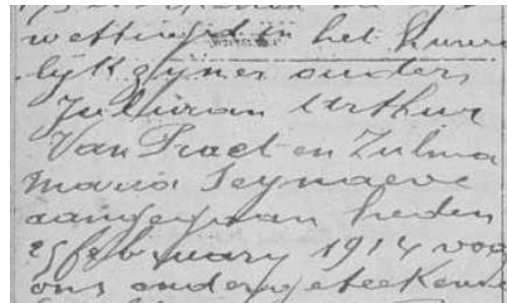 wettingd in het huwe
lijk zijner ouders
Julliaan Arthur
Van Praet en Zulma
Maria Seynaeve
aangegaan heden
25 februarij 1914 voor
ons ondergeteekende